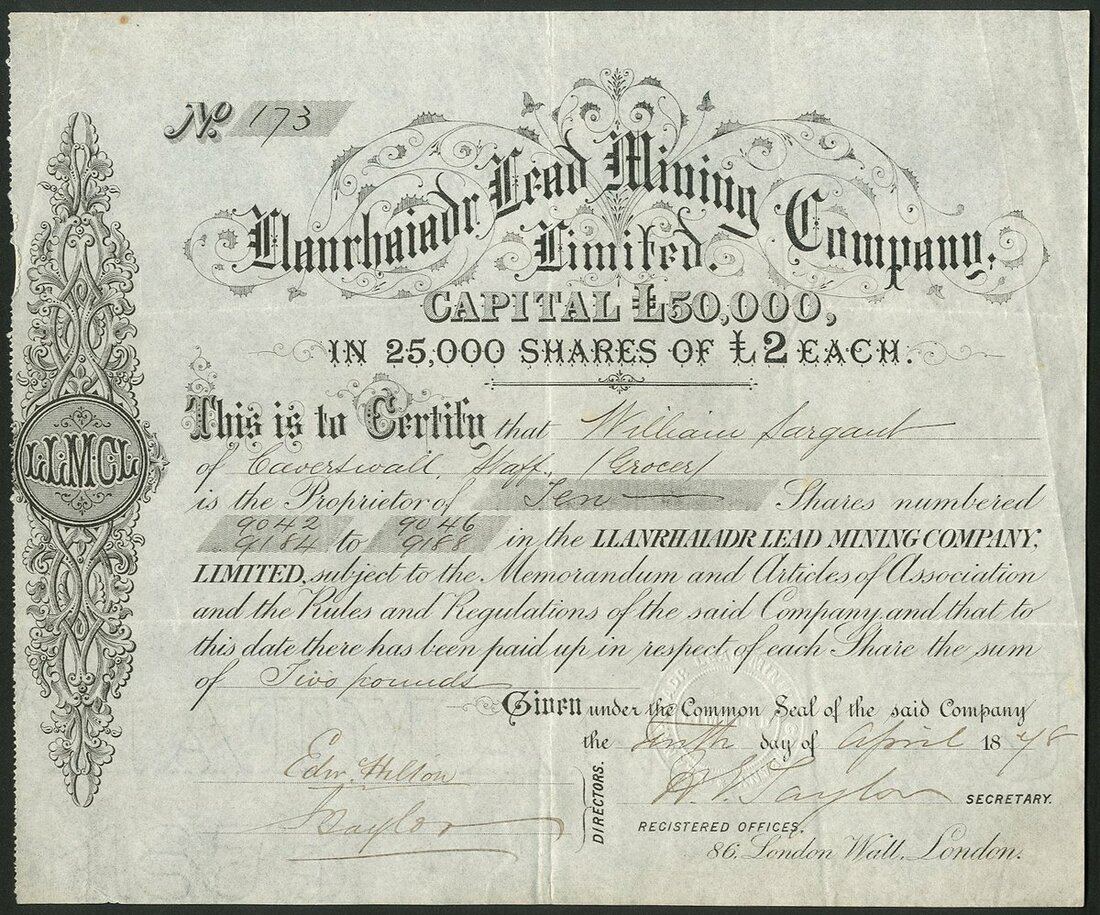 No. 173
Llanrhaiadr Lead Mining Company,
Limited.
CAPITAL £50,000,
IN 25,000 SHARES OF £2 EACH.
This is to Certify that William Sargant
of Caverswall, Staff. (Grocer)
is the Proprietor of Ten Shares numbered
9042 9046
9184 to 9188 in the LLANRHAIADR LEAD MINING COMPANY,
LIMITED, subject to the Memorandum and Articles of Association
and the Rules and Regulations of the said Company, and that to
this date there has been paid up in respect of each Share the sum
of Two pounds
Given under the Common Seal of the said Company
the day of April 1878
Edw. Hilton
Taylor
DIRECTORS.
Taylor SECRETARY.
REGISTERED OFFICES,
86, London Wall, London.
LLMCL